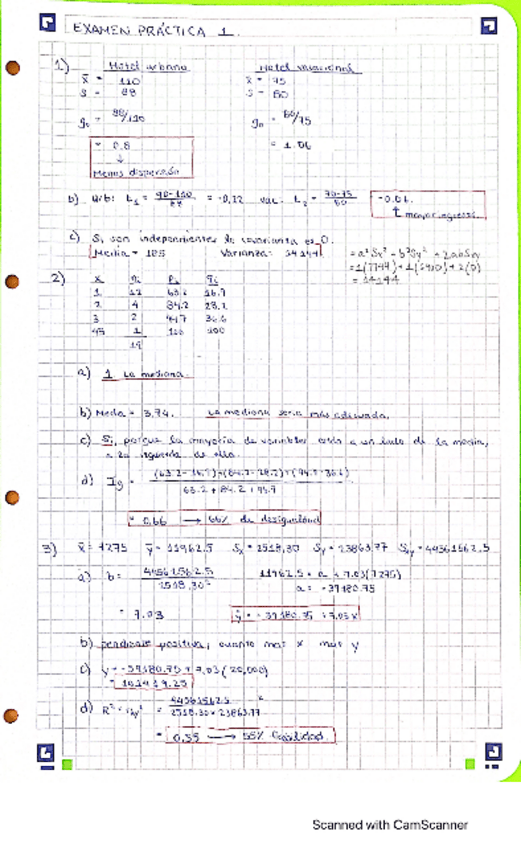 EXAMEN PRÁCTICA 1.
1) Hotel urbano Hotel vacacional
x̄ = 110 x̄ = 75
S = 88 S = 80
g₀ = 88/110 g₀ = 80/75
= 0.8 = 1.06
↓
Menos dispersión
b) urb: L₁ = = -0.22 vac: L₂ = 70-75/80 -0.06
↑ mayor ingreso.
c) Si son independientes la covarianza es 0.
Media = 185 Varianza: 14144 = a² Sx² + b² Sy² + 2ab Sxy
= 1(7744) + 1(6400) + 2(0)
= 14144
2) x
1 63.2 16.7
2 4 84.2 28.2
3 2 94.7 36.6
45 1 100 100
19
a) 1 La mediana.
b) Media = 3.74. La mediana sería más adecuada.
c) Si, porque la mayoría de variables está a un lado de la media,
a la izquierda de ella.
d) Ig = (63.2 - 16.7) + (84.2 - 28.2) + (94.7 - 36.6)
63.2 + 84.2 + 94.7
= 0.66 → 66% de desigualdad
3) x̄ = 7275 ȳ = 11962.5 Sx = 2518,30 Sy = 23863.77 Sxy = 44561562.5
a) b = 44561562.5 11962.5 = a + 7.03(7275)
2518.30² a = -39180.75
= 7.03 ŷ = -39180.75 + 7.03x
b) pendiente positiva, cuanto mas x mas y
c) y = -39180.75 + 7.03(20,000)
= 101419.25
d) R² = rxy² = 44561562.5 ²
2518.30 × 23863.77
= 0,55 → 55% fiabilidad.
Scanned with CamScanner